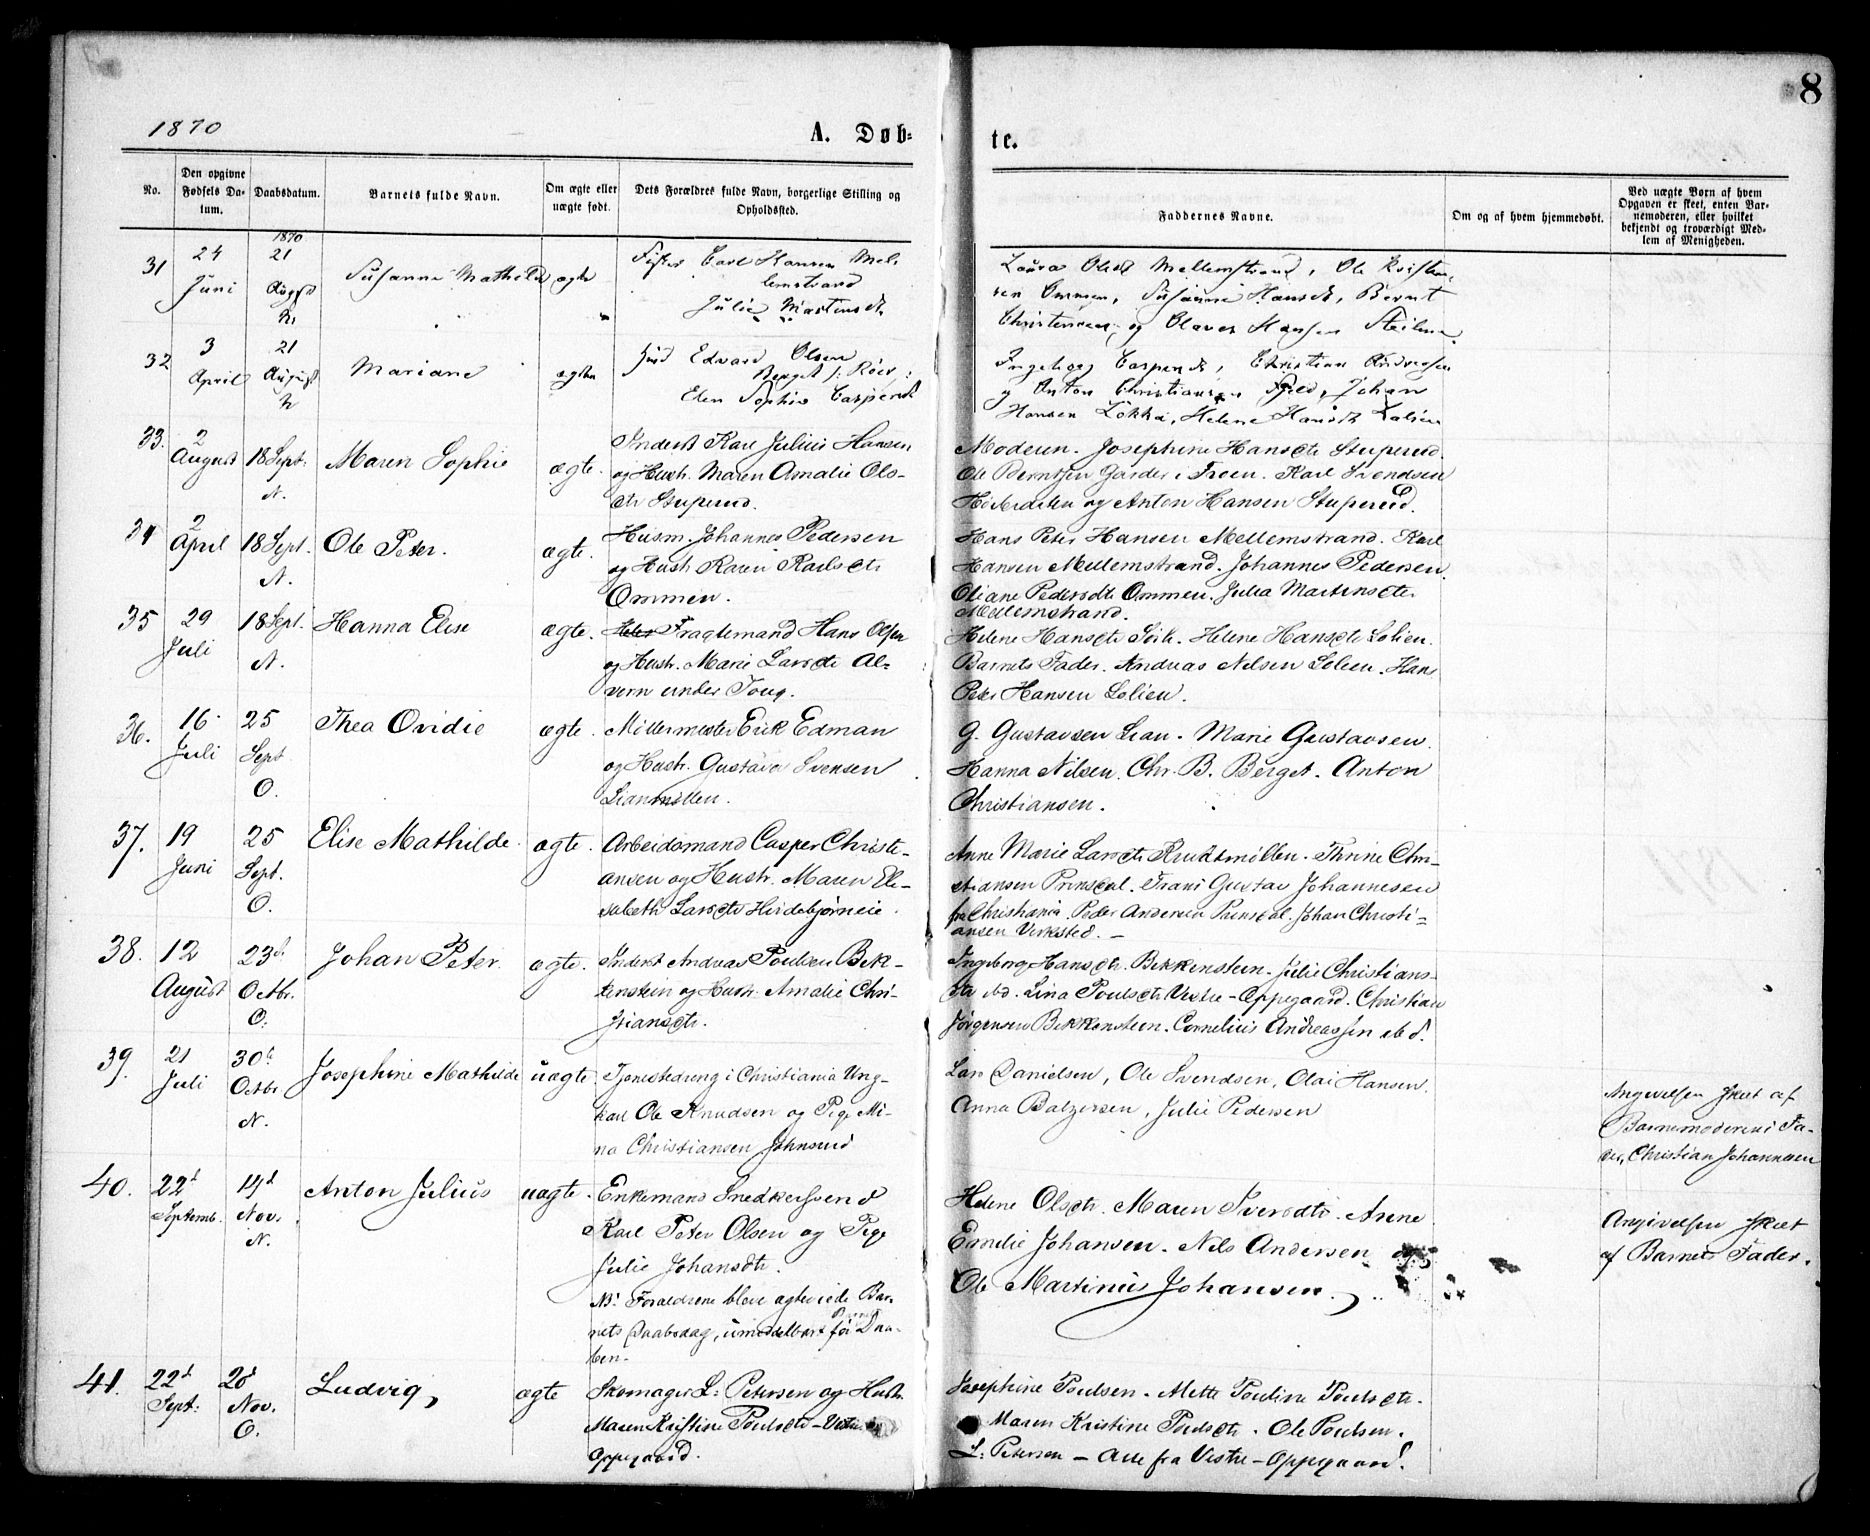 8
1870
A. Døb-
te.
No.
Den opgivne Fødsels Da-
tum.
Daabsdatum.
Barnets fulde Navn.
Om ægte eller
uægte født.
Dets Forældres fulde Navn, borgerlige Stilling og
Opholdssted.
Faddernes Navne.
Om og af hvem hjemmedøbt.
Ved uægte Born af hvem
Opgaven er skeet, enten Bar-
nemoderen, eller hvilket
bekjendt og troværdigt Med-
lem af Menigheden.
31
24
Juni
1870
21
August
Susanne Mathilde
ægte
Carl Hansen Mel-
lemstrand
Julie Martinsdt.
Laura Olsdt Mellemstrand, Ole Kristen-
sen Ommen, Susanne Hansdt, Bernt
Christensen og Olaves Hansen
32
3
April
21
August
Mariane
ægte
Edvard Olsen
Berget
Elen Sophie Caspersdt
Ingeborg Caspersdt, Christian Andreasen
og Anton Christiansen Johan
Hansen Løkka, Helene Hansdt
33.
2
August
18 Sept.
N.
Maren Sophie
ægte.
Inderst Karl Julius Hansen
og Hustr. Maren Amalie Ols-
dtr Stuperud.
Moderen. Josephine Hansdtr Stuperud.
Ole Berntsen Garder i Froen. Karl Svendsen
og Anton Hansen Stuperud.
34
2
April
18 Sept.
N.
Ole Peter.
ægte.
Husm. Johannes Pedersen
og Hustr Karen Karlsdtr
Ommen.
Hans Peter Hansen Mellemstrand. Karl
Hansen Mellemstrand. Johannes Pedersen.
Oliane Pedersdtr Ommen. Julia Martinsdtr
Mellemstrand.
35
29
Juli
18 Sept.
N.
Hanna Elise
ægte.
Fragtemand Hans Olsen
og Hustr. Marie Larsdtr Al-
vern under Toug.
Helene Hansdtr Helene Hansdtr Solien.
Barnets Fader. Andreas Nilsen Solien. Hans
Peter Hansen Solien.
36.
16
Juli
25
Sept
O.
Thea Ovidie
ægte.
Møllermester Erik Edman
og Hustr. Gustava Svensen
Lianmøllen.
G. Gustavsen Lian. Marie Gustavsen.
Hanna Nilsen. Chr. B. Berget. Anton
Christiansen.
37.
19
Juni
25
Sept.
O.
Elise Mathilde
ægte.
Arbeidsmand Casper Christi-
ansen og Hustr. Maren Ele-
sabeth Larsdtr Hvidebjørneie.
Anne Marie Larsdtr Thrine Chri-
stiansen Prinsdal. Frans Gustav Johannesen
fra Christiania. Peder Andersen Prinsdal. Johan Christi-
ansen Verksted. —
38.
12
August
23d
Octbr.
O.
Johan Peter.
ægte.
Inderst Andreas Poulsen Bek-
kensteen og Hustr. Amalie Chri-
stiansdtr.
Ingeborg Hansdtr. Bekkensteen. Julie Christians-
dtr ibd. Lina Poulsdtr Vestre-Oppegaard. Christian
Jørgensen Bekkensteen. Cornelius Andreassen ibd.
39.
21
Juli
30te
Octbr
N.
Josephine Mathilde
uægte
Tjenestedreng i Christiania Ung-
karl Ole Knudsen og Pige Mi-
na Christiansen Johnsrud
Lars Danielsen, Ole Svendsen, Olai Hansen.
Anna Balzersen, Julie Pedersen
Angivelsen skeet af
Barnemoderens Fa-
der, Christian Johannesen
40.
22d
Septemb.
19d
Nov.
N.
Anton Julius
uægte.
Enkemand Snedkersvend
Karl Peter Olsen og Pige
Julie Johansdtr.
NB. Forældrene bleve ægteviede Bar-
nets Daabsdag, umiddelbart før Daa-
ben.
Helene Olsdtr. Maren Iversdtr. Anne
Emilie Johansen. Nils Andersen og
Ole Martinius Johansen.
Angivelsen skeet
af Barnets Fader.
41.
22d
Sept.
20d
Nov.
O.
Ludvig,
ægte
Skomager L. Petersen og Hustr.
Maren Kristine Poulsdtr – Vestre
Oppegaard.
Josephine Poulsen. Mette Pouline Poulsdtr.
Maren Kristine Poulsdtr. Ole Poulsen.
L. Petersen — Alle fra Vestre-Oppegaard.